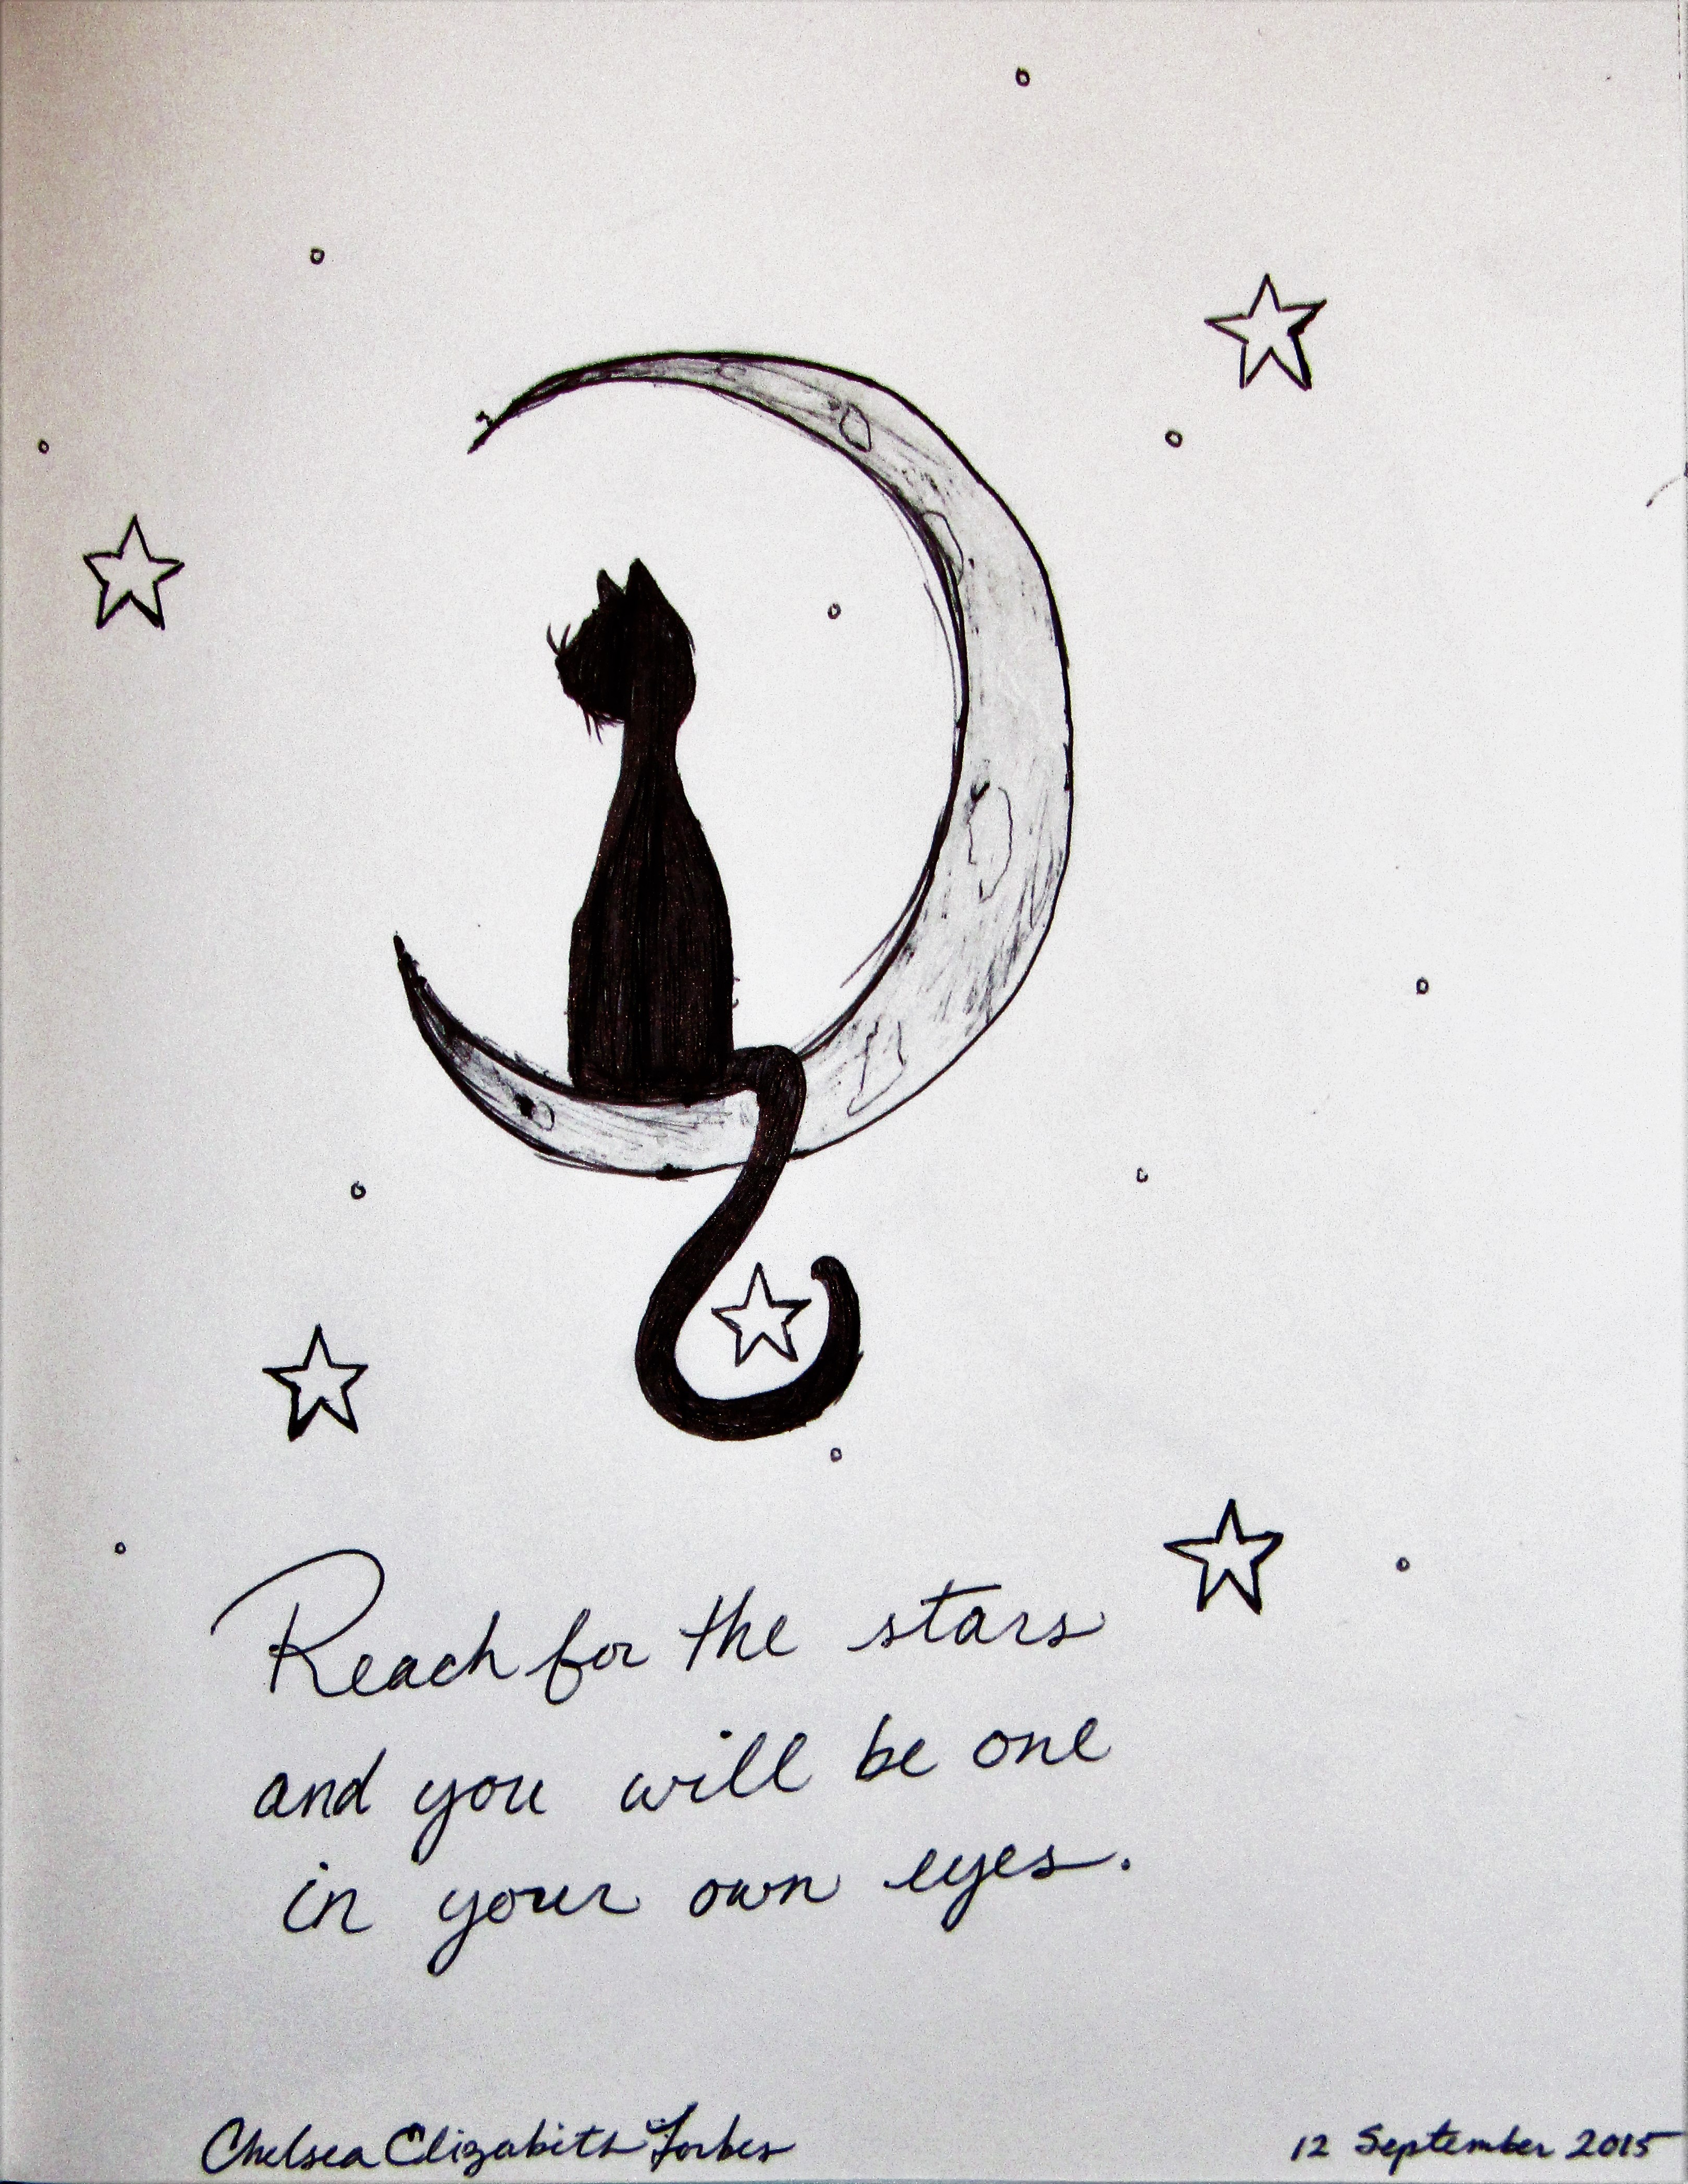 Reach for the stars
and you will be one
in your own eyes.
Chelsea Elizabeth Forbes
12 September 2015